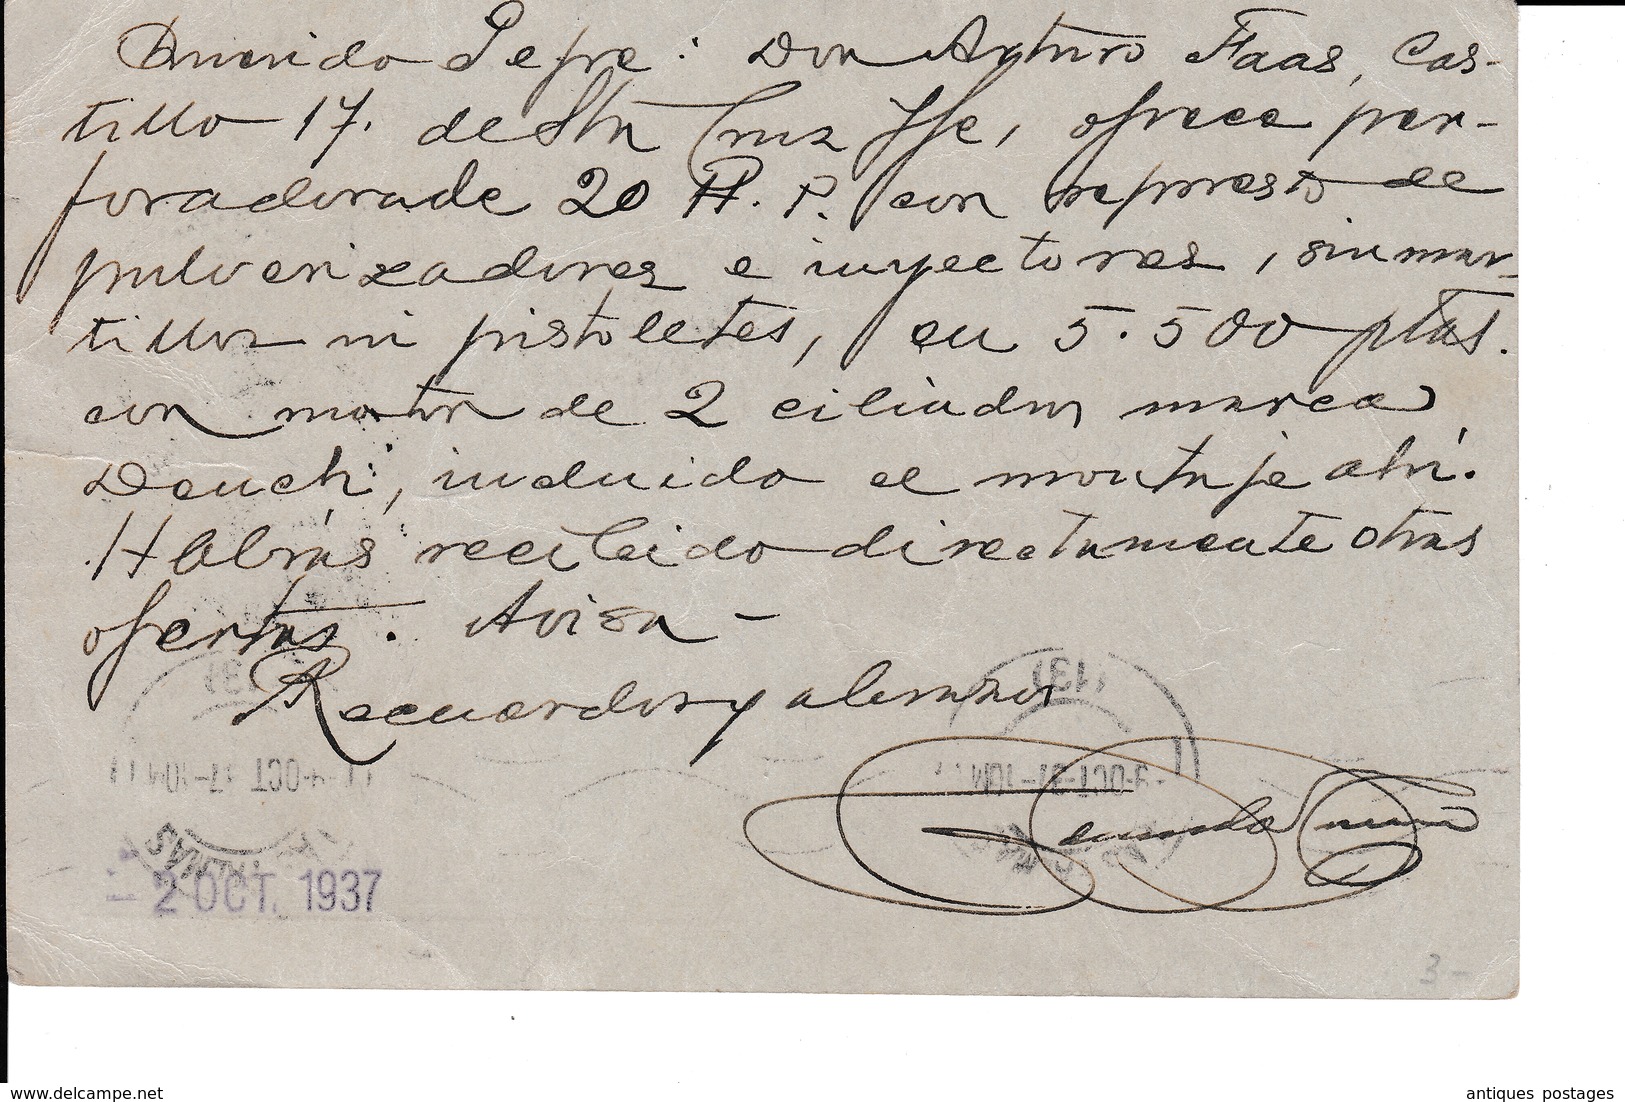 Querido Pepe: Don Arturo Faas, Cas-
tillo 17. de Sta Cruz Tfe, ofrece per-
foradora de 20 H.P. con repuesto de
pulverizadores e inyectores, sin mar-
tillos ni pistoletes, en 5.500 ptas.
con motor de 2 cilindros marca
Deuch, incluido el montaje ahí.
Habrás recibido directamente otras
ofertas. Avisa-
Recuerdos y abrazos
1937
1937
4-OCT 37-10M
3-OCT-37-10M
PALMAS
-2 OCT. 1937
3-
www.delcampe.net
antiques postages